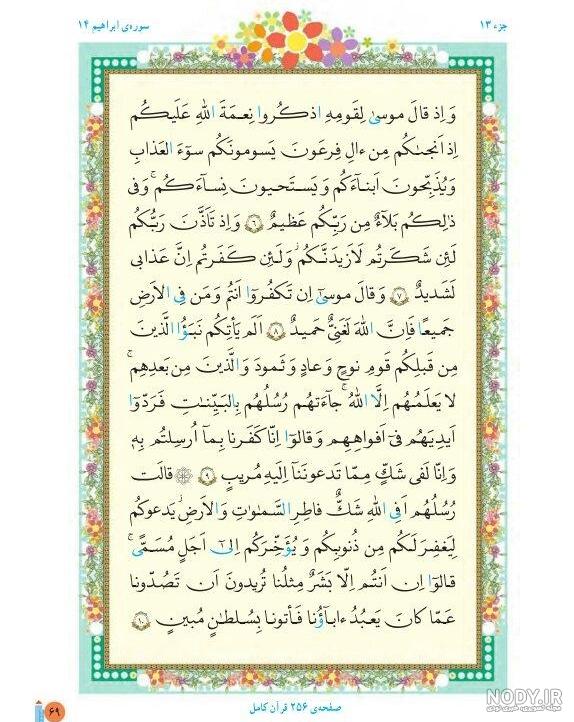 جزء ۱۳
سوره‌ی ابراهیم ۱۴
وَ اِذ قالَ موسیٰ لِقَومِهِ اذکُروا نِعمَةَ اللهِ عَلَیکُم
اِذ اَنجٰىکُم مِن ءالِ فِرعَونَ یَسومونَکُم سوءَ العَذابِ
وَ یُذَبِّحونَ اَبناءَکُم وَ یَستَحیونَ نِساءَکُم ۚ وَ فی
ذٰلِکُم بَلاءٌ مِن رَبِّکُم عَظیمٌ ﴿۶﴾ وَ اِذ تَاَذَّنَ رَبُّکُم
لَئِن شَکَرتُم لَاَزیدَنَّکُم ۖ وَ لَئِن کَفَرتُم اِنَّ عَذابی
لَشَدیدٌ ﴿۷﴾ وَ قالَ موسیٰ اِن تَکفُروا اَنتُم وَ مَن فِی الاَرضِ
جَمیعًا فَاِنَّ اللهَ لَغَنِیٌّ حَمیدٌ ﴿۸﴾ اَلَم یَأتِکُم نَبَؤُا الَّذینَ
مِن قَبلِکُم قَومِ نوحٍ وَ عادٍ وَ ثَمودَ وَ الَّذینَ مِن بَعدِهِم ۚ
لا یَعلَمُهُم اِلَّا اللهُ ۚ جاءَتهُم رُسُلُهُم بِالبَیِّناتِ فَرَدّوا
اَیدِیَهُم فی اَفواهِهِم وَ قالوا اِنّا کَفَرنا بِما اُرسِلتُم بِهٖ
وَ اِنّا لَفی شَکٍّ مِمّا تَدعونَنا اِلَیهِ مُریبٍ ﴿۹﴾ ۞ قالَت
رُسُلُهُم اَفِی اللهِ شَکٌّ فاطِرِ السَّمٰوٰتِ وَ الاَرضِ ۖ یَدعوکُم
لِیَغفِرَ لَکُم مِن ذُنوبِکُم وَ یُؤَخِّرَکُم اِلیٰ اَجَلٍ مُسَمًّی ۚ
قالوا اِن اَنتُم اِلّا بَشَرٌ مِثلُنا تُریدونَ اَن تَصُدّونا
عَمّا کانَ یَعبُدُ ءاباؤُنا فَأتونا بِسُلطٰنٍ مُبینٍ ﴿۱۰﴾
صفحه‌ی ۲۵۶ قرآن کامل
۶۹
NODY.IR